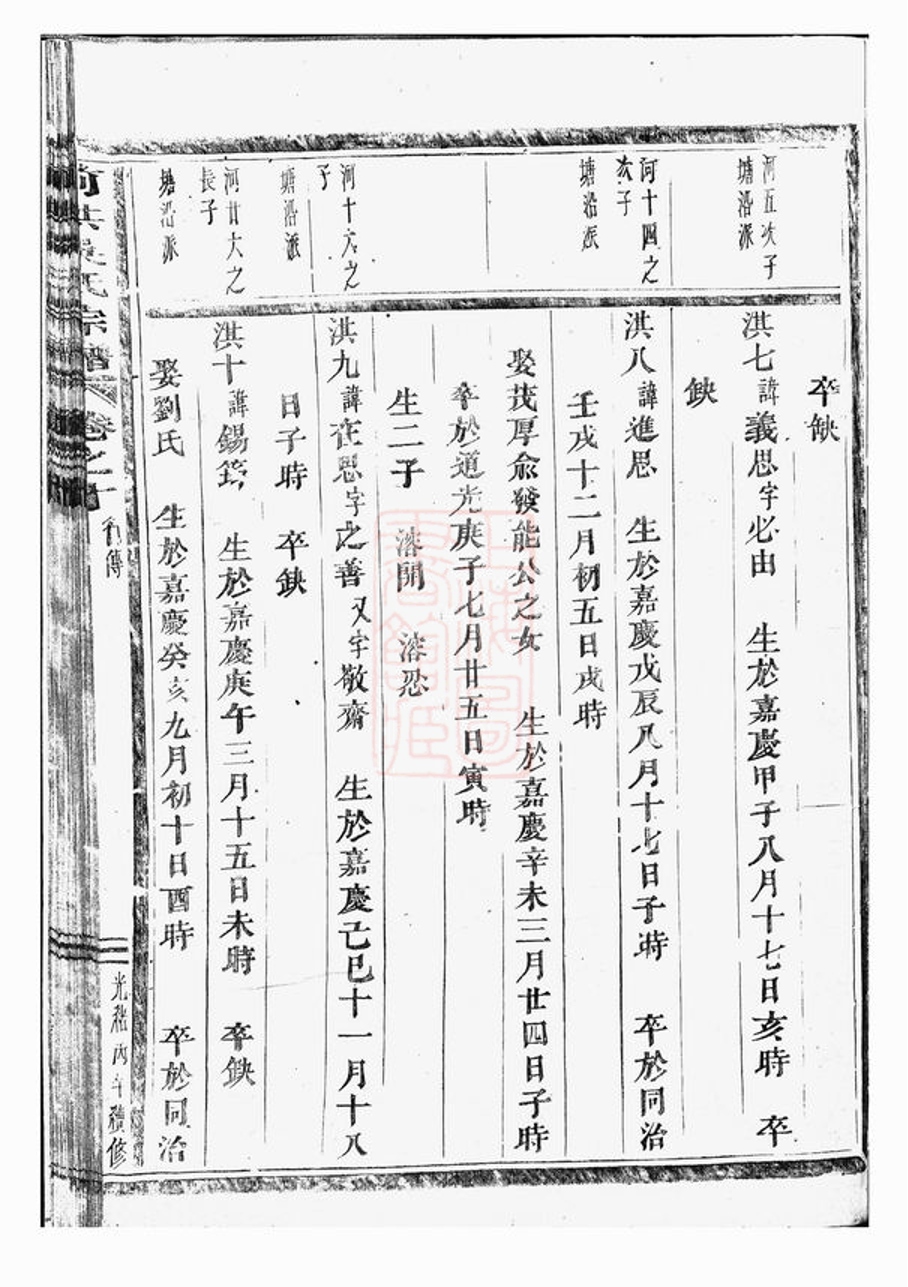 卒缺
河五次子
塘沿派
洪七諱義思字必由 生於嘉慶甲子八月十七日亥時 卒
缺
河十四之
次子
塘沿派
洪八諱進思 生於嘉慶戊辰八月十七日子時 卒於同治
壬戌十二月初五日戌時
娶茂厚俞發能公之女 生於嘉慶辛未三月廿四日子時
卒於道光庚子七月廿五日寅時
生二子 溶開 溶恐
河十六之
子
塘沿派
洪九諱在思字止善又字敬齋 生於嘉慶己巳十一月十八
日子時 卒缺
河廿六之
長子
塘沿派
洪十諱錫筠 生於嘉慶庚午三月十五日未時 卒缺
娶劉氏 生於嘉慶癸亥九月初十日酉時 卒於同治
吳氏宗譜 卷之十 行傳 光緒丙午續修